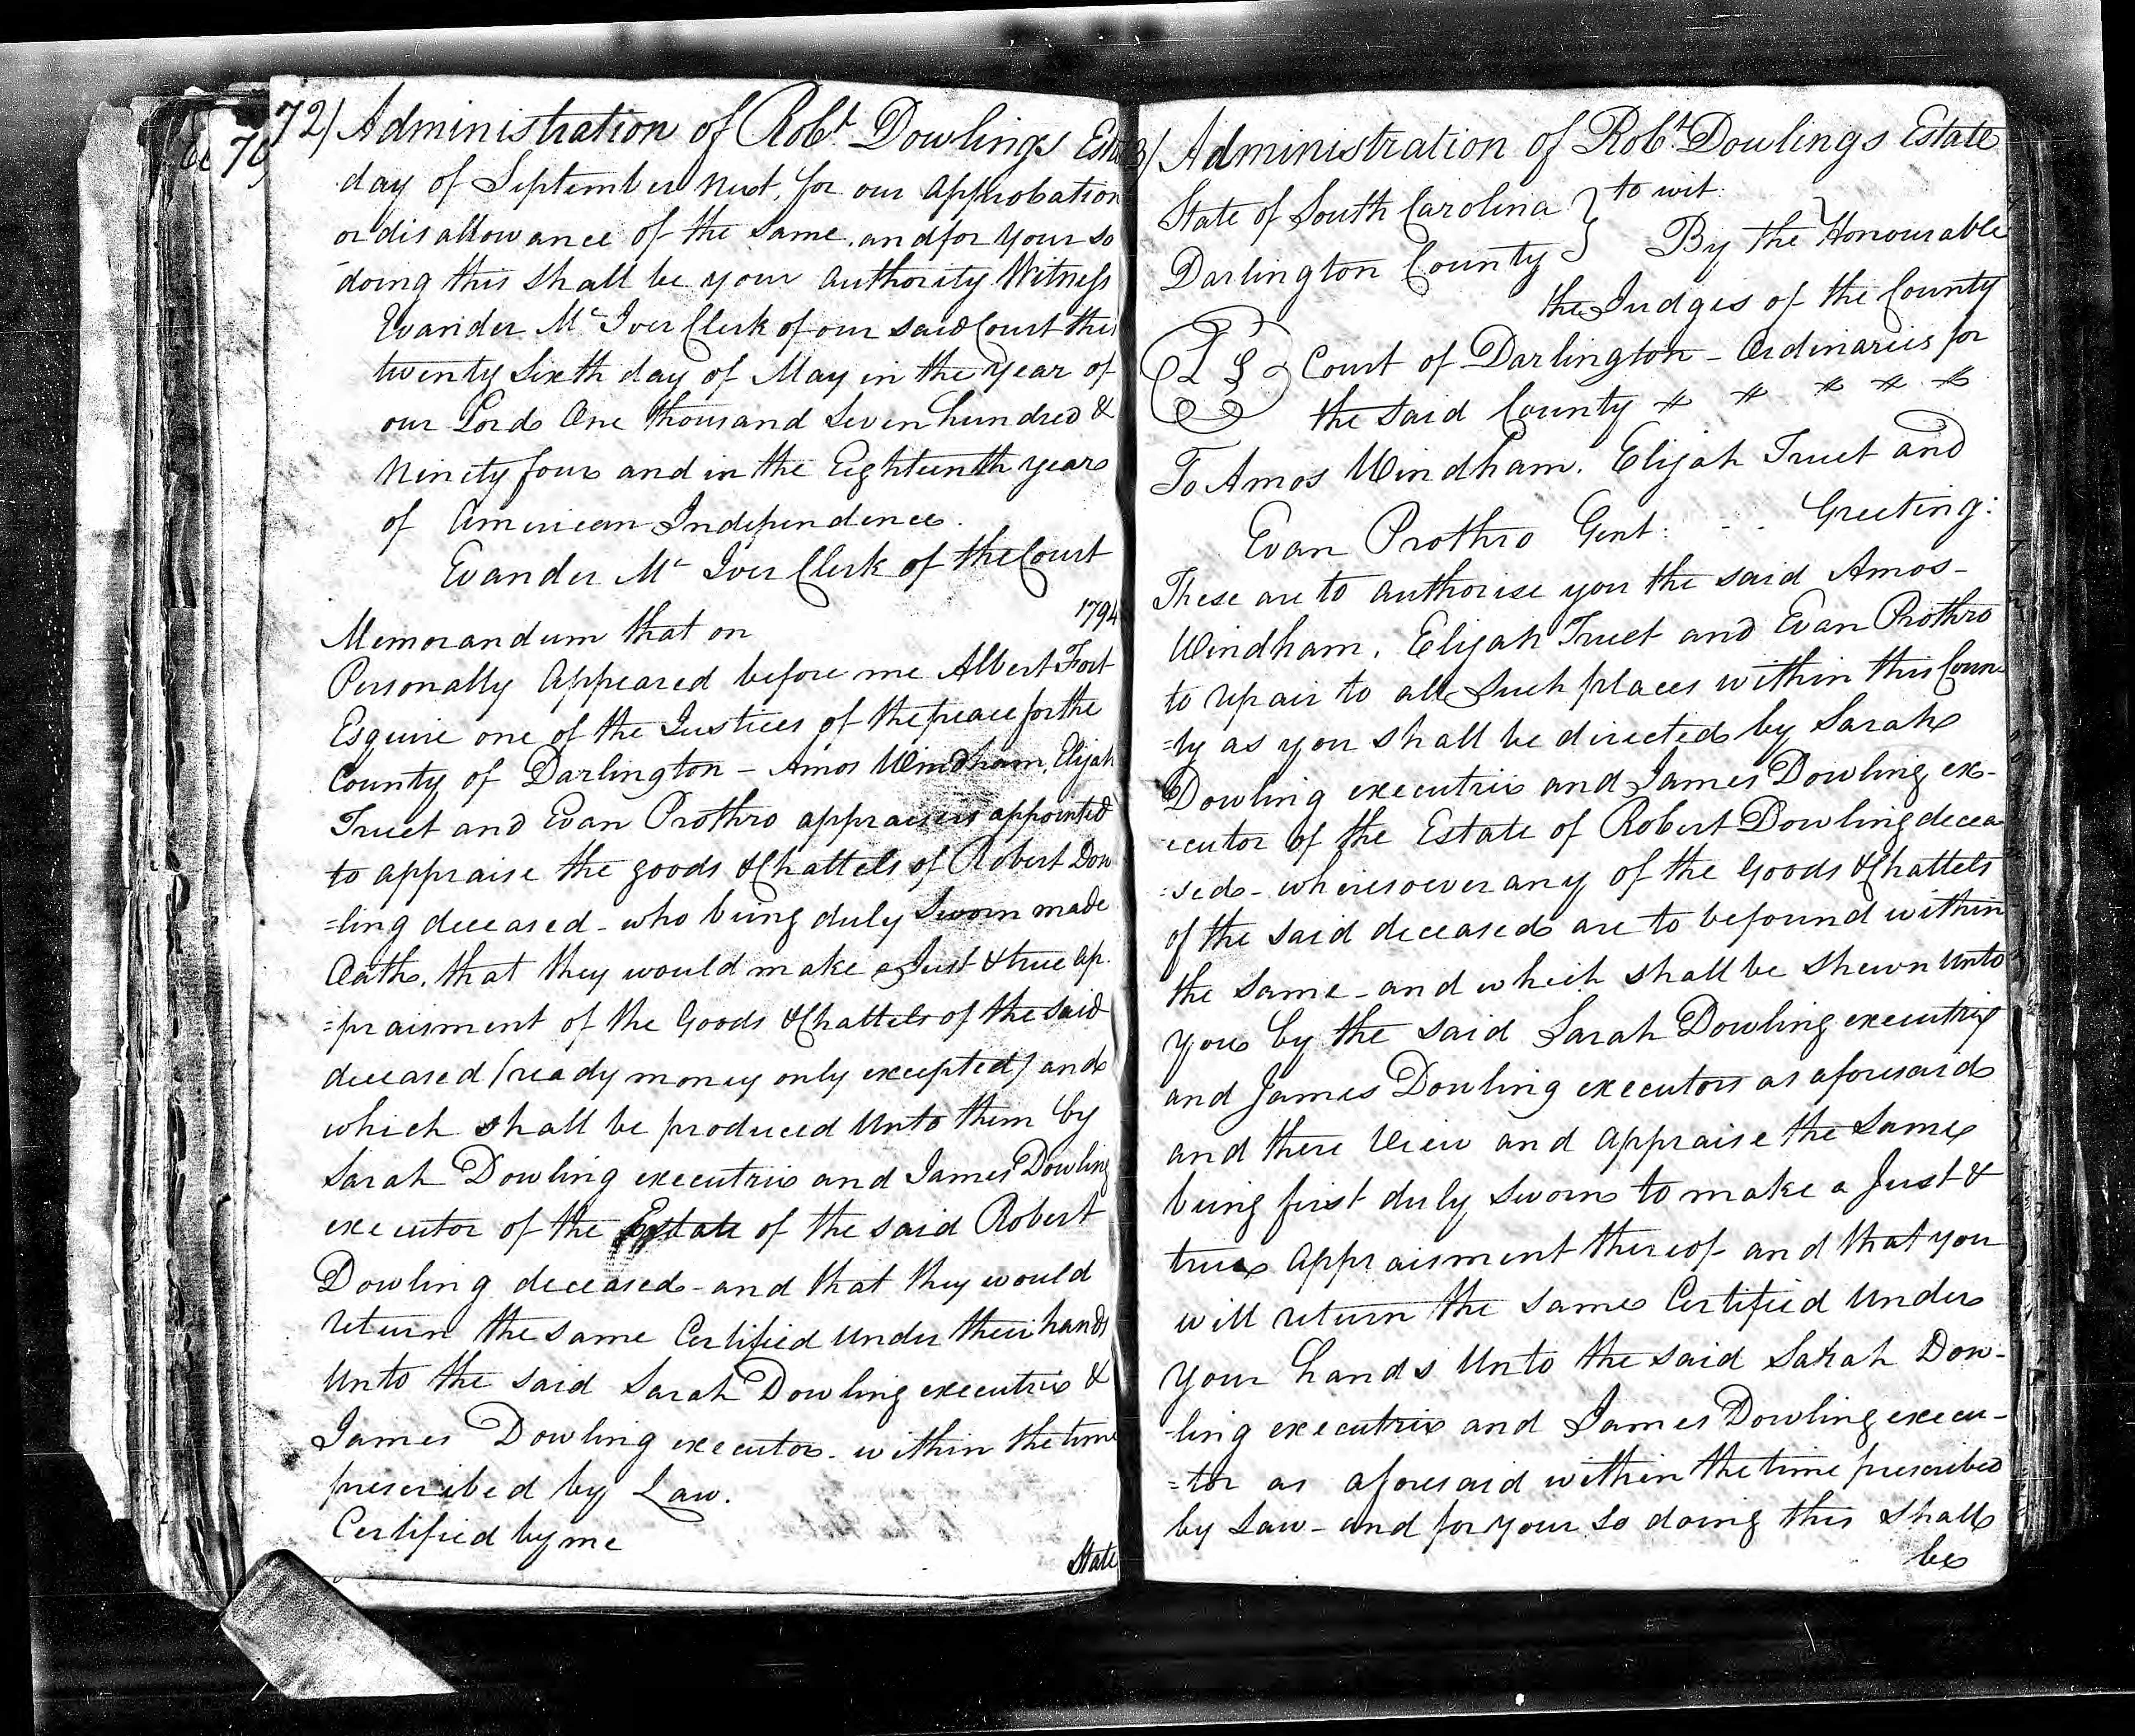 72) Administration of Robt. Dowlings Esta
day of September next, for our Approbation
or disallowance of the same, and for your so
doing this shall be your Authority Witness
Evander Mc Iver Clerk of our said Court this
twenty sixth day of May in the year of
our Lord One thousand Seven hundred &
Ninety four and in the Eighteenth year
of American Independence.
Evander Mc Iver Clerk of the Court
Memorandum that on 1794
Personally Appeared before me Albert Fort
Esquire one of the Justices of the peace for the
County of Darlington - Amos Windham, Elijah
Truet and Evan Prothro appraisers appointed
to appraise the goods & Chattels of Robert Dow
=ling deceased - who being duly Sworn made
Oath, that they would make a Just & true ap.
=praisment of the Goods & Chattels of the said
deceased (ready money only excepted) and
which shall be produced Unto them by
Sarah Dowling executrix and James Dowling
executor of the Estate of the said Robert
Dowling deceased - and that they would
return the same Certified Under their hands
Unto the said Sarah Dowling executrix &
James Dowling executor - within the time
prescribed by Law.
Certified by me
State
3) Administration of Robt. Dowlings Estate
State of South Carolina } to wit:
Darlington County } By the Honourable
the Judges of the County
L S Court of Darlington - Ordinaries for
the said County
To Amos Windham, Elijah Truet and
Evan Prothro Gent: - - . Greeting:
These are to authorise you the said Amos-
Windham, Elijah Truet and Evan Prothro
to repair to all Such places within this Coun-
=ty as you shall be directed by Sarah
Dowling executrix and James Dowling ex-
=ecutor of the Estate of Robert Dowling decea
=sed - wheresoever any of the Goods & Chattels
of the said deceased are to be found within
the same - and which shall be shewn Unto
you by the said Sarah Dowling executrix
and James Dowling executors as aforesaid
and there View and appraise the Same
being first duly sworn to make a Just &
true appraisment thereof and that you
will return the same Certified Under
your hands Unto the said Sarah Dow-
-ling executrix and James Dowling execu-
=tor as aforesaid within the time prescribed
by Law - and for your so doing this shall
be